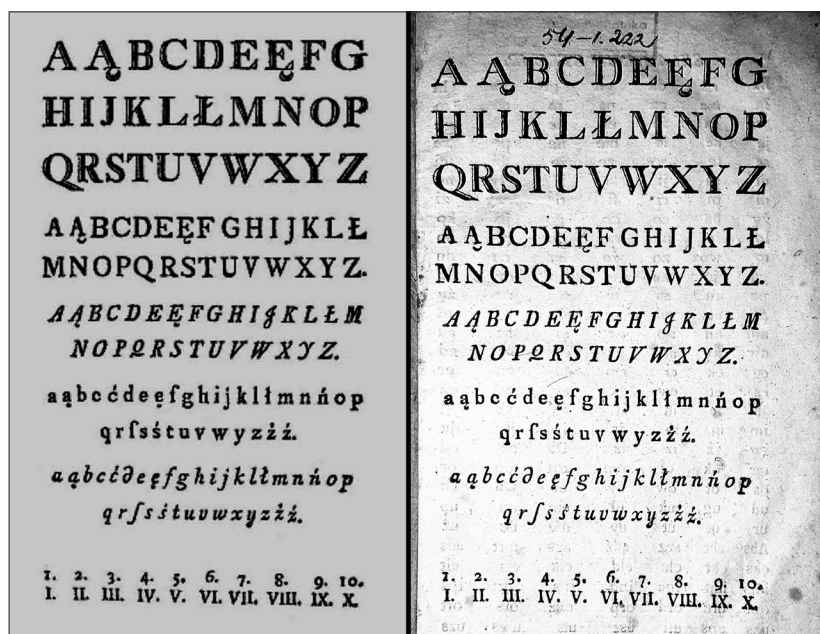 A Ą B C D E Ę F G
H I J K L Ł M N O P
Q R S T U V W X Y Z
A Ą B C D E Ę F G H I J K L Ł
M N O P Q R S T U V W X Y Z.
A Ą B C D E Ę F G H I J K L Ł M
N O P Q R S T U V W X Y Z.
a ą b c ć d e ę f g h i j k l ł m n ń o p
q r ſ s ś t u v w y z ż ź.
a ą b c ć d e ę f g h i j k l ł m n ń o p
q r ſ s ś t u v w x y z ż ź.
1. 2. 3. 4. 5. 6. 7. 8. 9. 10.
I. II. III. IV. V. VI. VII. VIII. IX. X.
54-1.222
A Ą B C D E Ę F G
H I J K L Ł M N O P
Q R S T U V W X Y Z
A Ą B C D E Ę F G H I J K L Ł
M N O P Q R S T U V W X Y Z.
A Ą B C D E Ę F G H I J K L Ł M
N O P Q R S T U V W X Y Z.
a ą b c ć d e ę f g h i j k l ł m n ń o p
q r ſ s ś t u v w y z ż ź.
a ą b c ć d e ę f g h i j k l ł m n ń o p
q r ſ s ś t u v w x y z ż ź.
1. 2. 3. 4. 5. 6. 7. 8. 9. 10.
I. II. III. IV. V. VI. VII. VIII. IX. X.